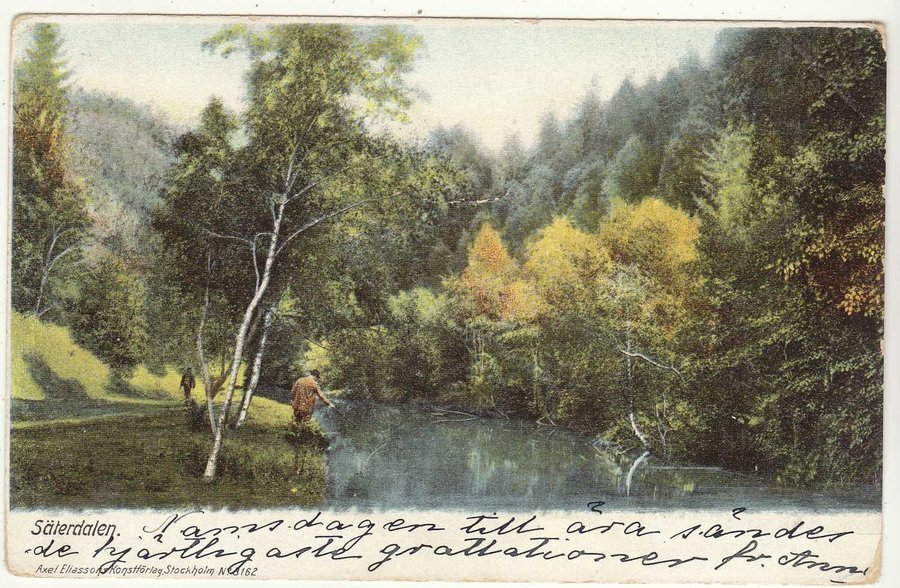 Säterdalen.
Namsdagen till ära sändes
de hjärtligaste grattationer fr. Anna
Axel Eliassons Konstförlag, Stockholm Nº 3162